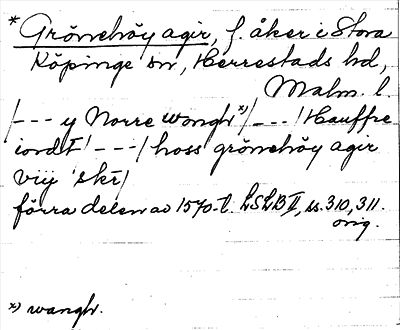 * Grönehöy agir, f. åker i Stora
Köpinge sn, Herrestads hd,
Malm. l.
/--- y Norre wangh *)/---/ Hauffre
iordt /---/ hoss grönehöy agir
viij skr/
förra delen av 1570-t. LSLB II, ss. 310, 311.
orig.
*) wanghr.